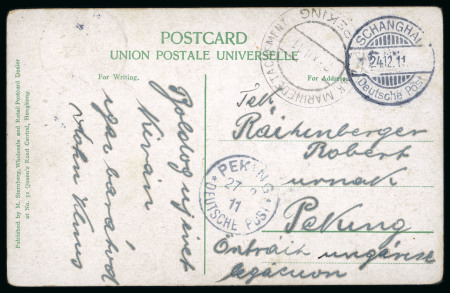 POSTCARD
UNION POSTALE UNIVERSELLE
For Writing.
For Address
Published by M. Sternberg, Wholesale and Retail Postcard Dealer
at No. 51 Queen's Road Central, Hongkong.
Boldog ujévet
Kíván
igaz barátod
John
SCHANGHAI
24.12.11
Deutsche Post
PEKING
MARINEDETACHEMENT
PEKING
27
11
DEUTSCHE POST
Tek.
Raihenberger
Robert
urnak
Peking